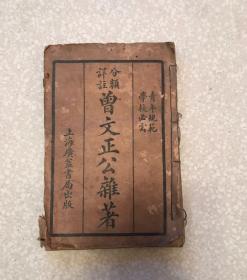 青年規範
學校必需
分類
詳註
曾文正公雜著
上海廣益書局出版